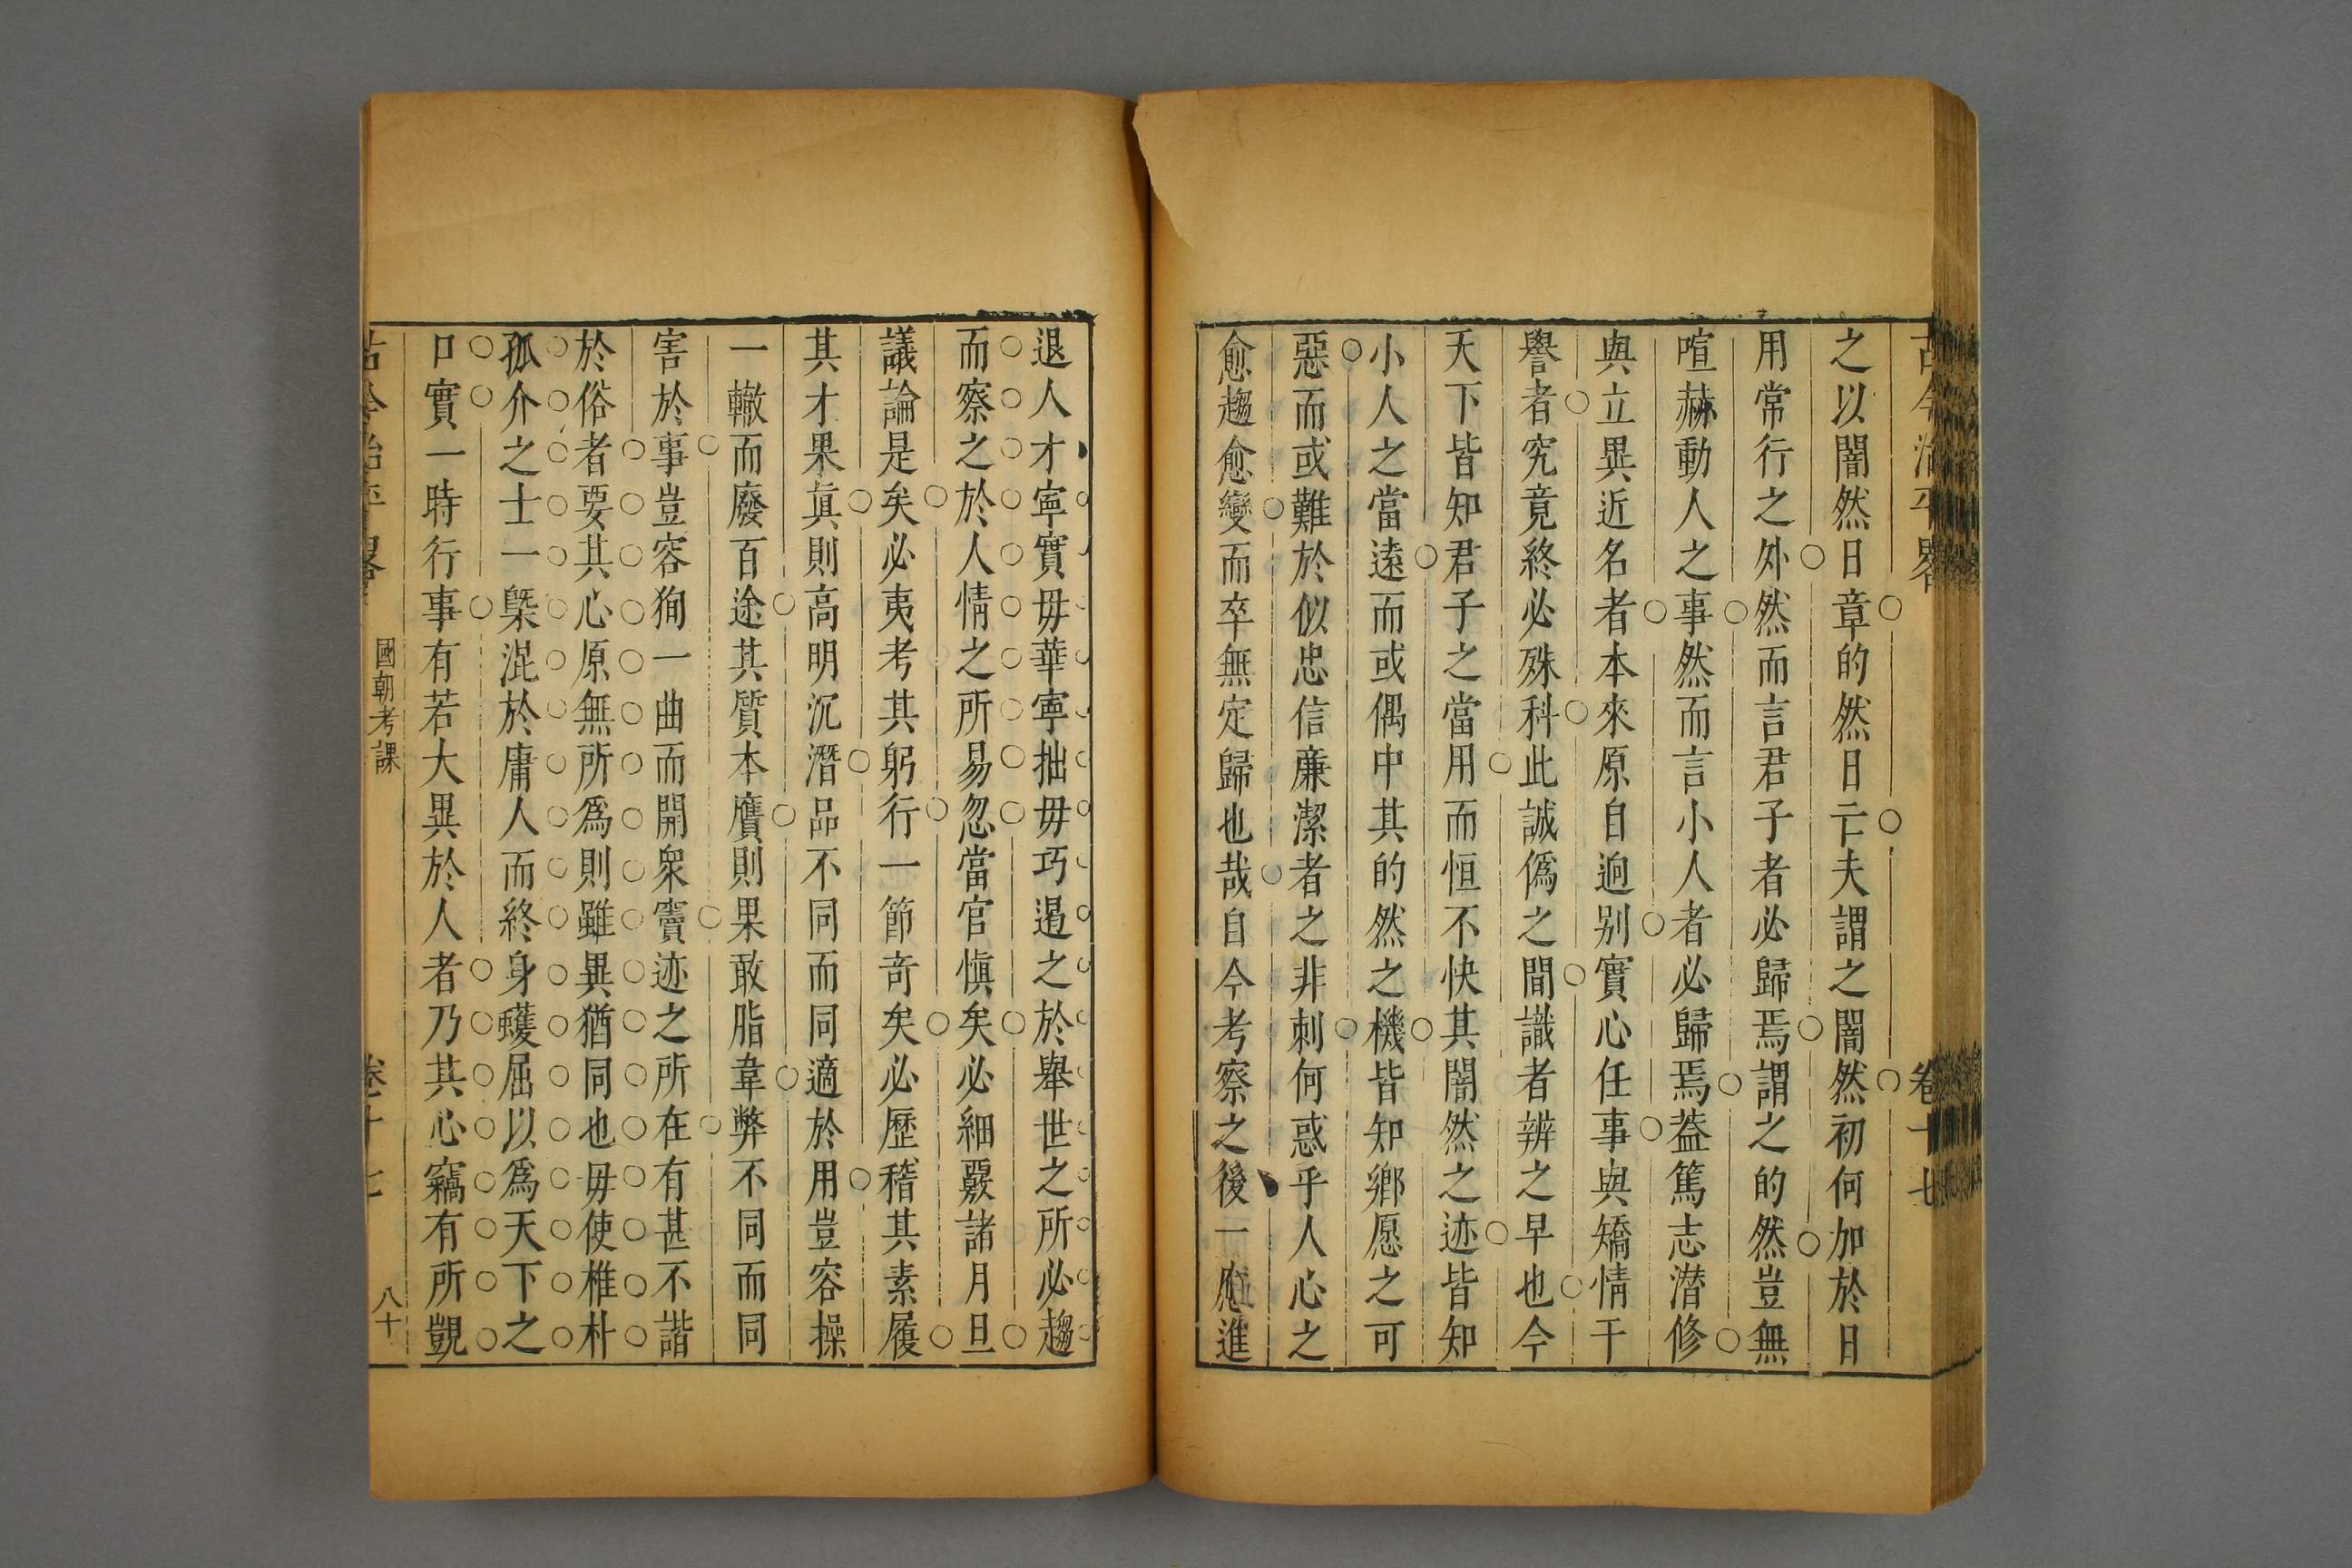 古今治平畧 卷十七
之以闇然日章的然日亡夫謂之闇然初何加於日
用常行之外然而言君子者必歸焉謂之的然豈無
喧赫動人之事然而言小人者必歸焉葢篤志潛修
與立異近名者本來原自逈别實心任事與矯情干
譽者究竟終必殊科此誠僞之間識者辨之早也今
天下皆知君子之當用而恒不快其闇然之迹皆知
小人之當遠而或偶中其的然之機皆知鄉愿之可
惡而或難於似忠信廉潔者之非刺何惑乎人心之
愈趨愈變而卒無定歸也哉自今考察之後一應進
退人才寧實毋華寧拙毋巧遏之於舉世之所必趨
而察之於人情之所易忽當官愼矣必細覈諸月旦
議論是矣必夷考其躬行一節奇矣必歷稽其素履
其才果眞則高明沉潛品不同而同適於用豈容操
一轍而廢百途其質本贗則果敢脂韋弊不同而同
害於事豈容狥一曲而開衆竇迹之所在有甚不諧
於俗者要其心原無所爲則雖異猶同也毋使椎朴
孤介之士一槩混於庸人而終身蠖屈以爲天下之
口實一時行事有若大異於人者乃其心竊有所覬
古今治平畧 國朝考課 卷十七 八十